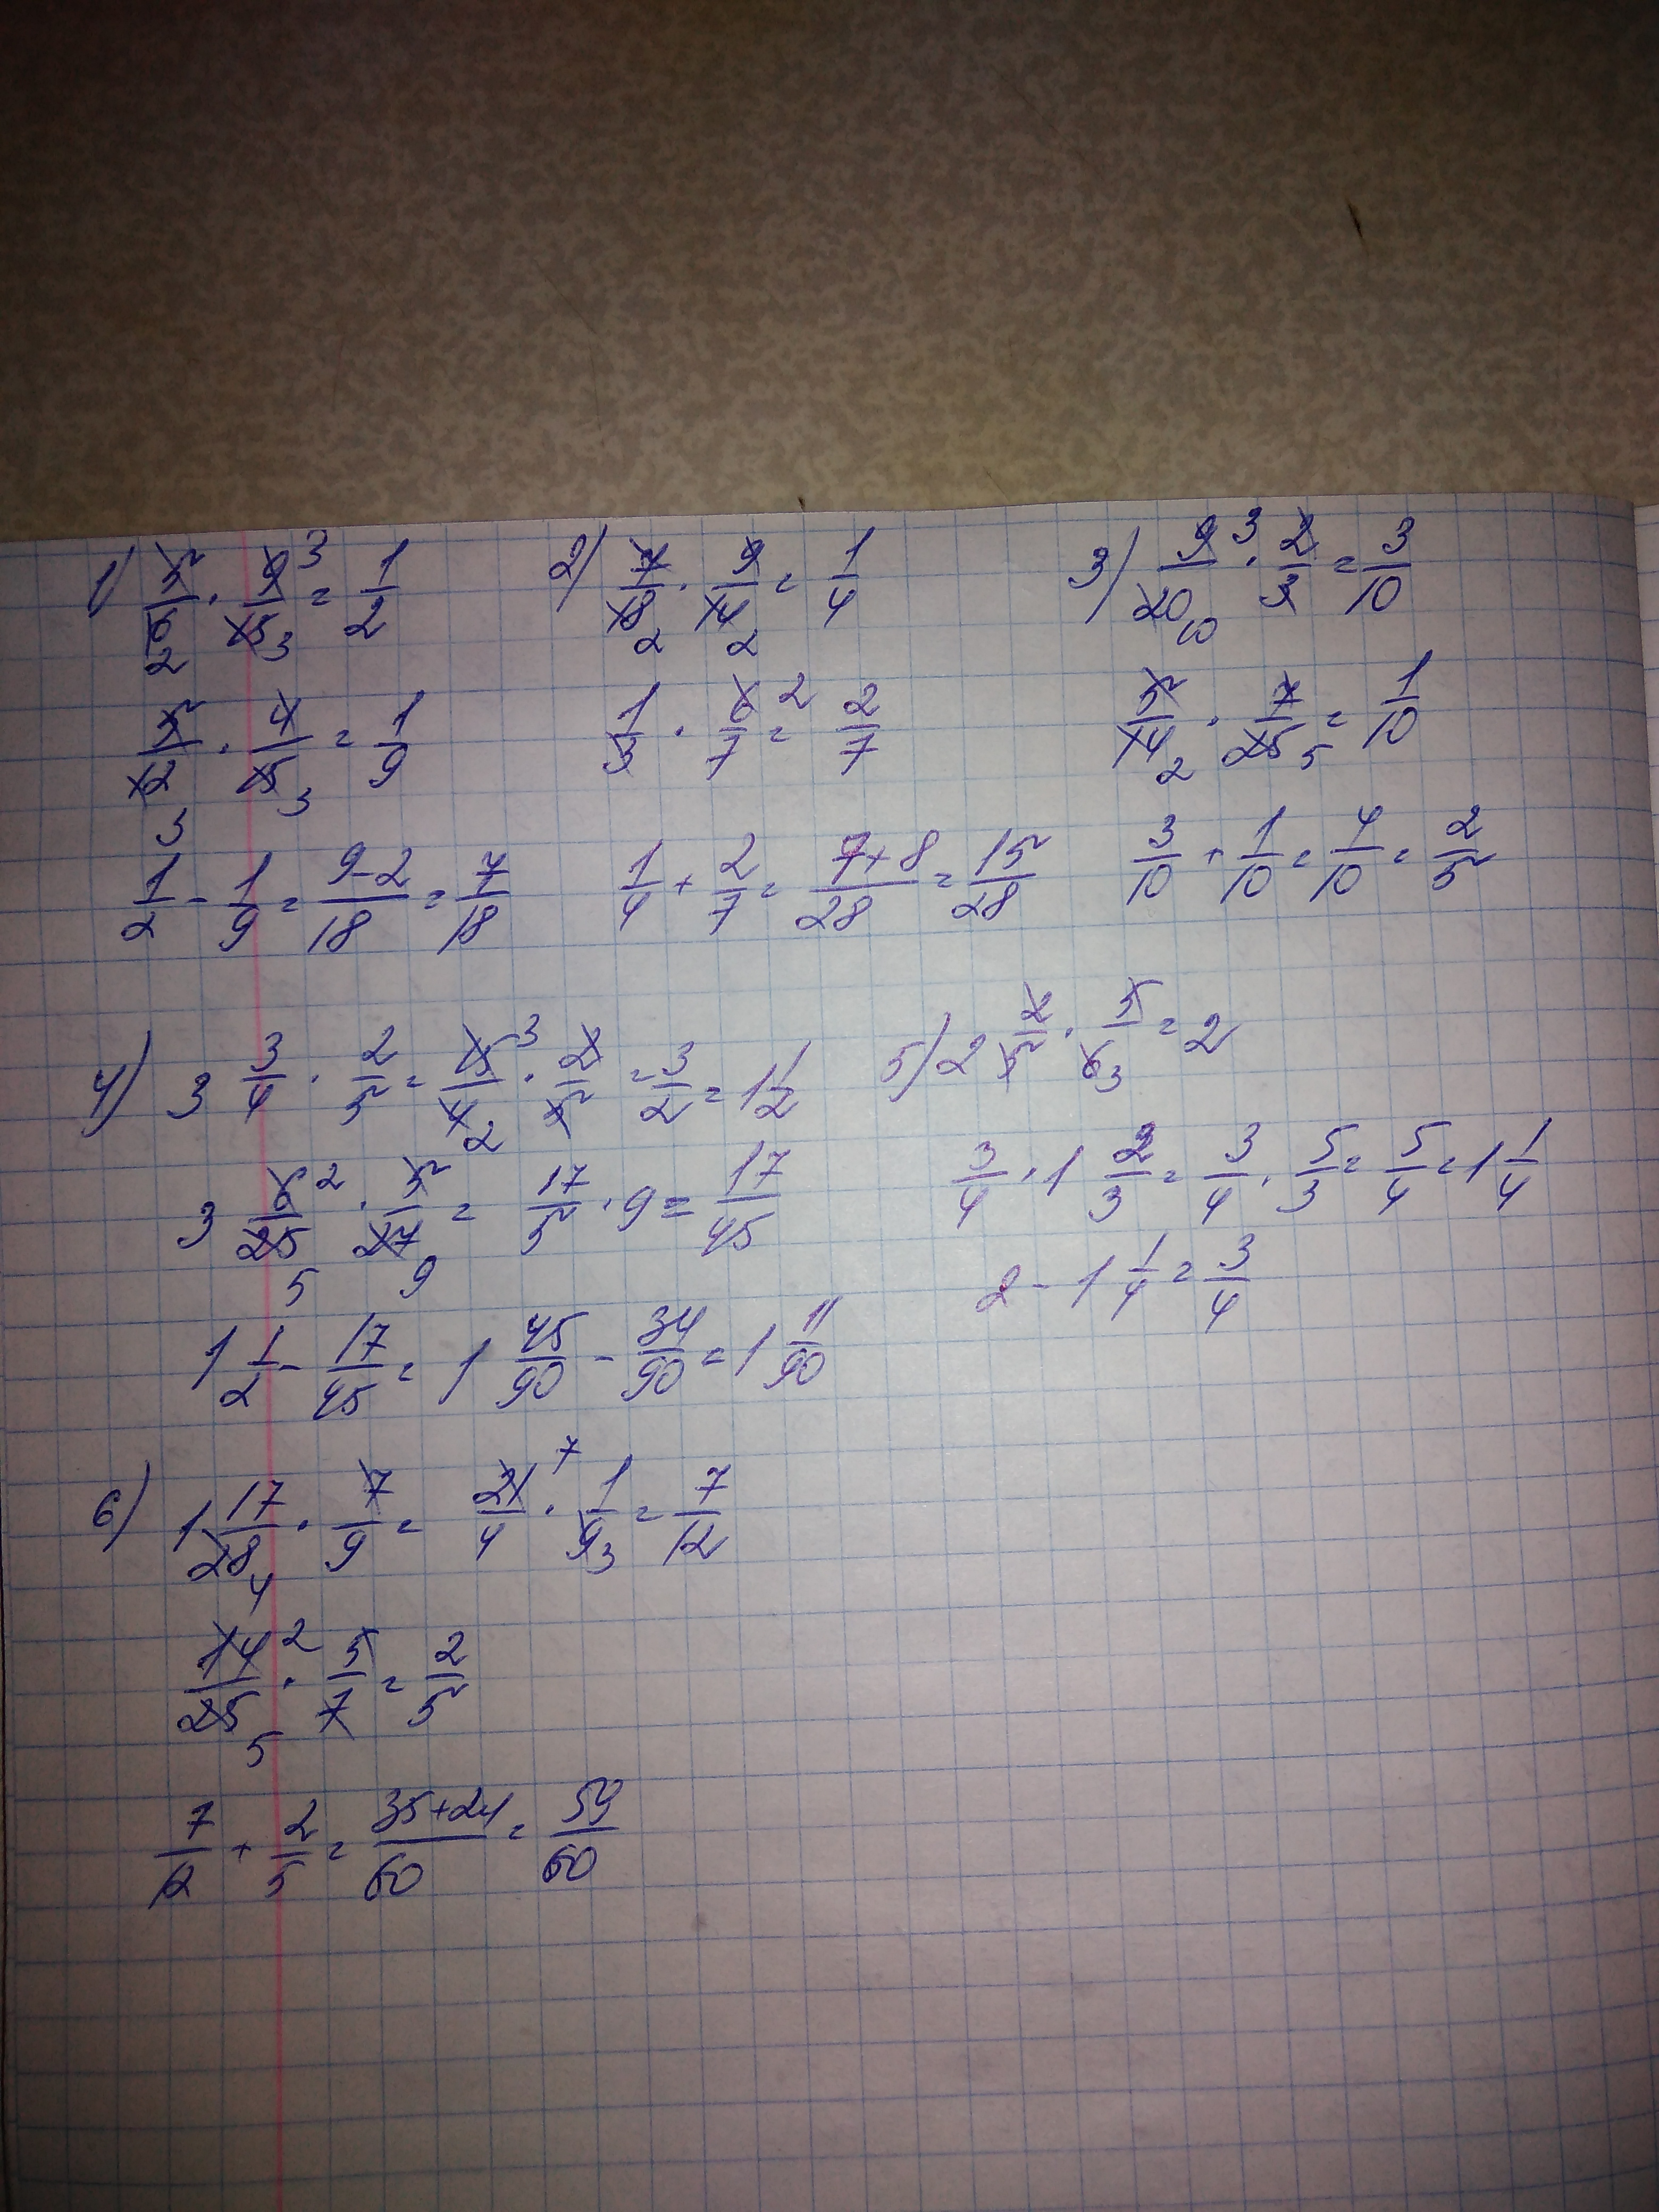 1) 5/6 · 9/15 = 1/2
5/12 · 4/15 = 1/9
1/2 - 1/9 = (9-2)/18 = 7/18
2) 7/18 · 9/14 = 1/4
1/3 · 6/7 = 2/7
1/4 + 2/7 = (7+8)/28 = 15/28
3) 9/20 · 2/3 = 3/10
5/14 · 7/25 = 1/10
3/10 + 1/10 = 4/10 = 2/5
4) 3 3/4 · 2/5 = 15/4 · 2/5 = 3/2 = 1 1/2
3 6/25 · 5/27 = 17/5 · 9 = 17/45
1 1/2 - 17/45 = 1 45/90 - 34/90 = 1 11/90
5) 2 2/5 · 5/6 = 2
3/4 · 1 2/3 = 3/4 · 5/3 = 5/4 = 1 1/4
2 - 1 1/4 = 3/4
6) 1 17/28 · 7/9 = 21/4 · 1/9 = 7/12
14/25 · 5/7 = 2/5
7/12 + 2/5 = (35+24)/60 = 59/60